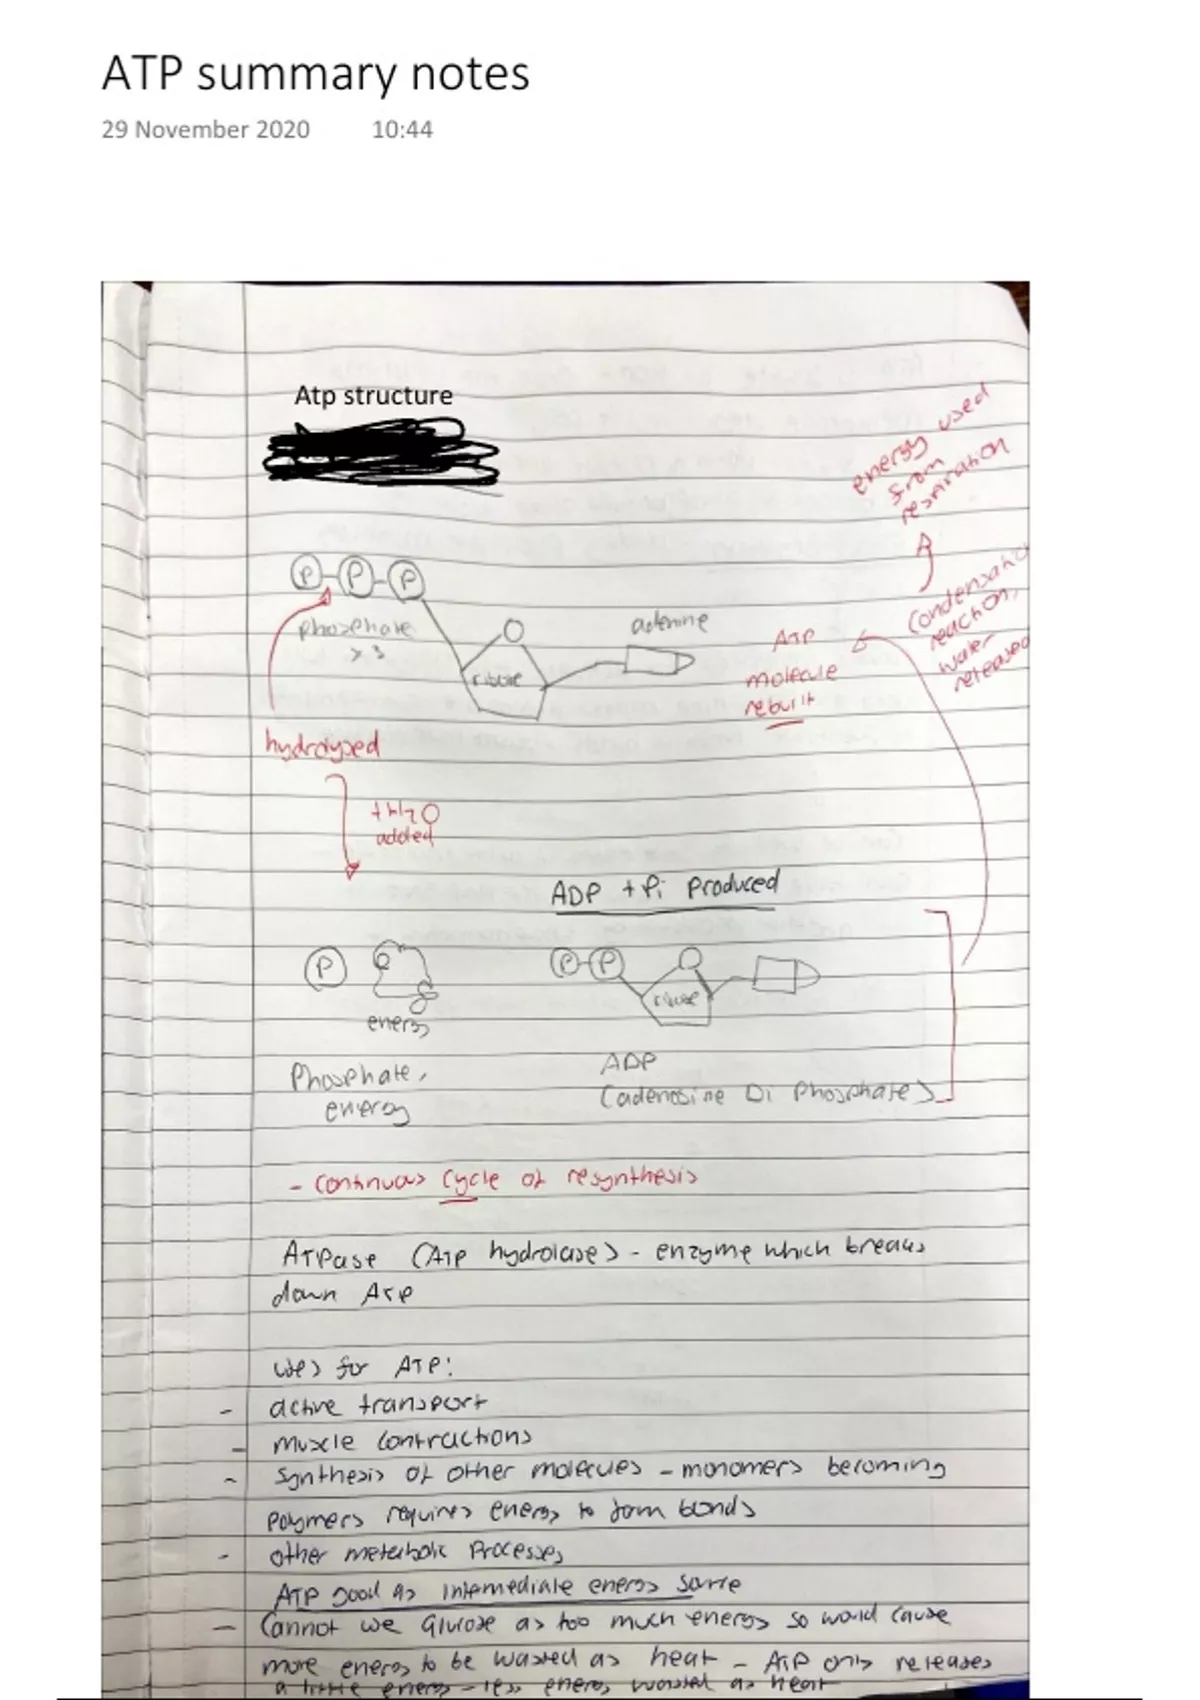 ATP summary notes
29 November 2020 10:44
Atp structure
energy used
from
respiration
P-P-P
phosphate
x 3
ribose
adenine
ATP
molecule
rebuilt
Condensation
reaction,
water
released
hydrolysed
added
ADP + Pi produced
P
energy
P-P
ribose
Phosphate,
energy
ADP
(adenosine Di Phosphate)
- continuous cycle of resynthesis
ATPase (ATP hydrolase) - enzyme which breaks
down ATP
uses for ATP:
- active transport
- muscle contractions
- synthesis of other molecules - monomers becoming
polymers requires energy to form bonds
- other metabolic processes
ATP good as intermediate energy source
- Cannot use Glucose as too much energy so would cause
more energy to be wasted as heat - ATP only releases
a little energy - less energy wasted as heat